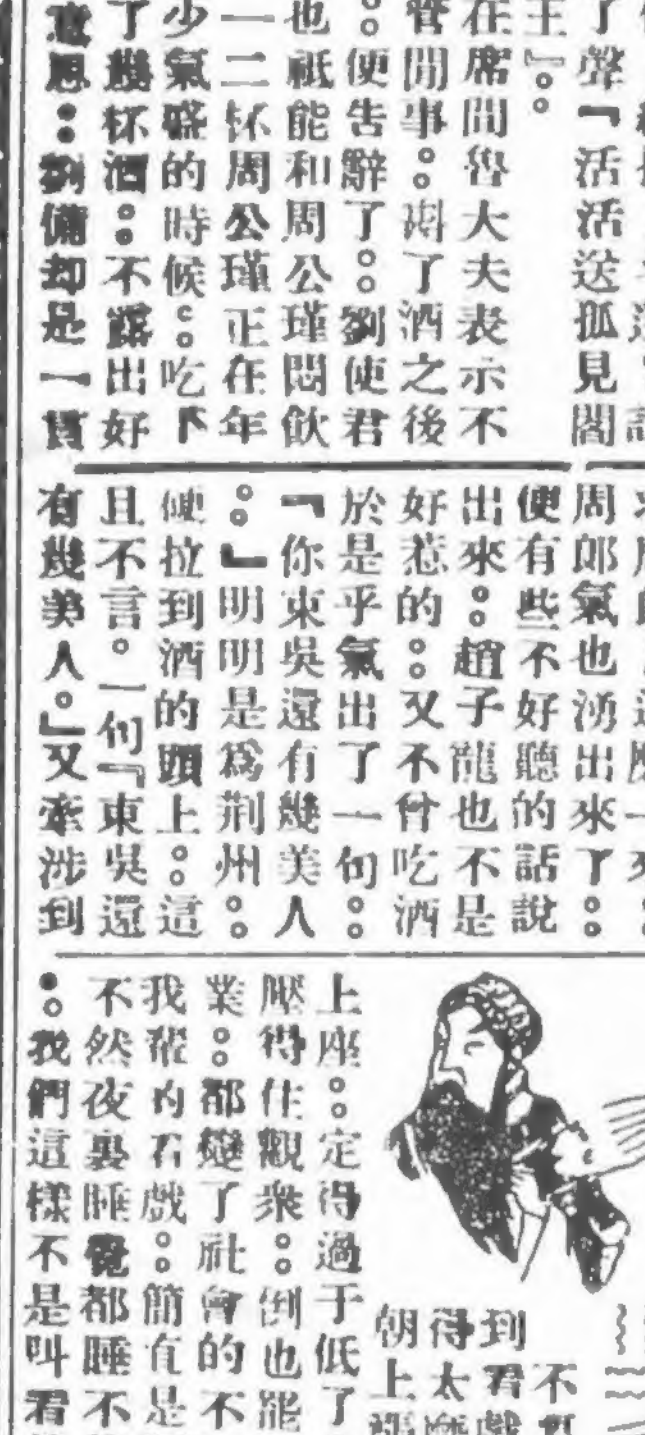 了聲『活活送孤見閻
王』。。
在席間魯大夫表示不
管閒事。。了酒之後
。。便告辭了。。劉使君
也祇能和周公瑾悶飲
一二杯周公瑾正在年
少氣盛的時候。。吃下
了幾杯酒。。不露出好
意思。。劉備却是一貫
周郎氣也湧出來了。。
便有些不好聽的話說
出來。。趙子龍也不是
好惹的。。又不曾吃酒
於是乎氣出了一句。。
『你東吳還有幾美人
。。』明明是爲荆州。。
便拉到酒的頭上。。這
且不言。一句『東吳還
有幾美人。』又牽涉到
不
到看戲
得太
朝上
上座。。定得過于低了
壓得住觀衆。。倒也能
業。。都變了社會的不
我輩的看戲。。簡直是
不然夜裏睡覺都睡不
。。我們這樣不是叫看